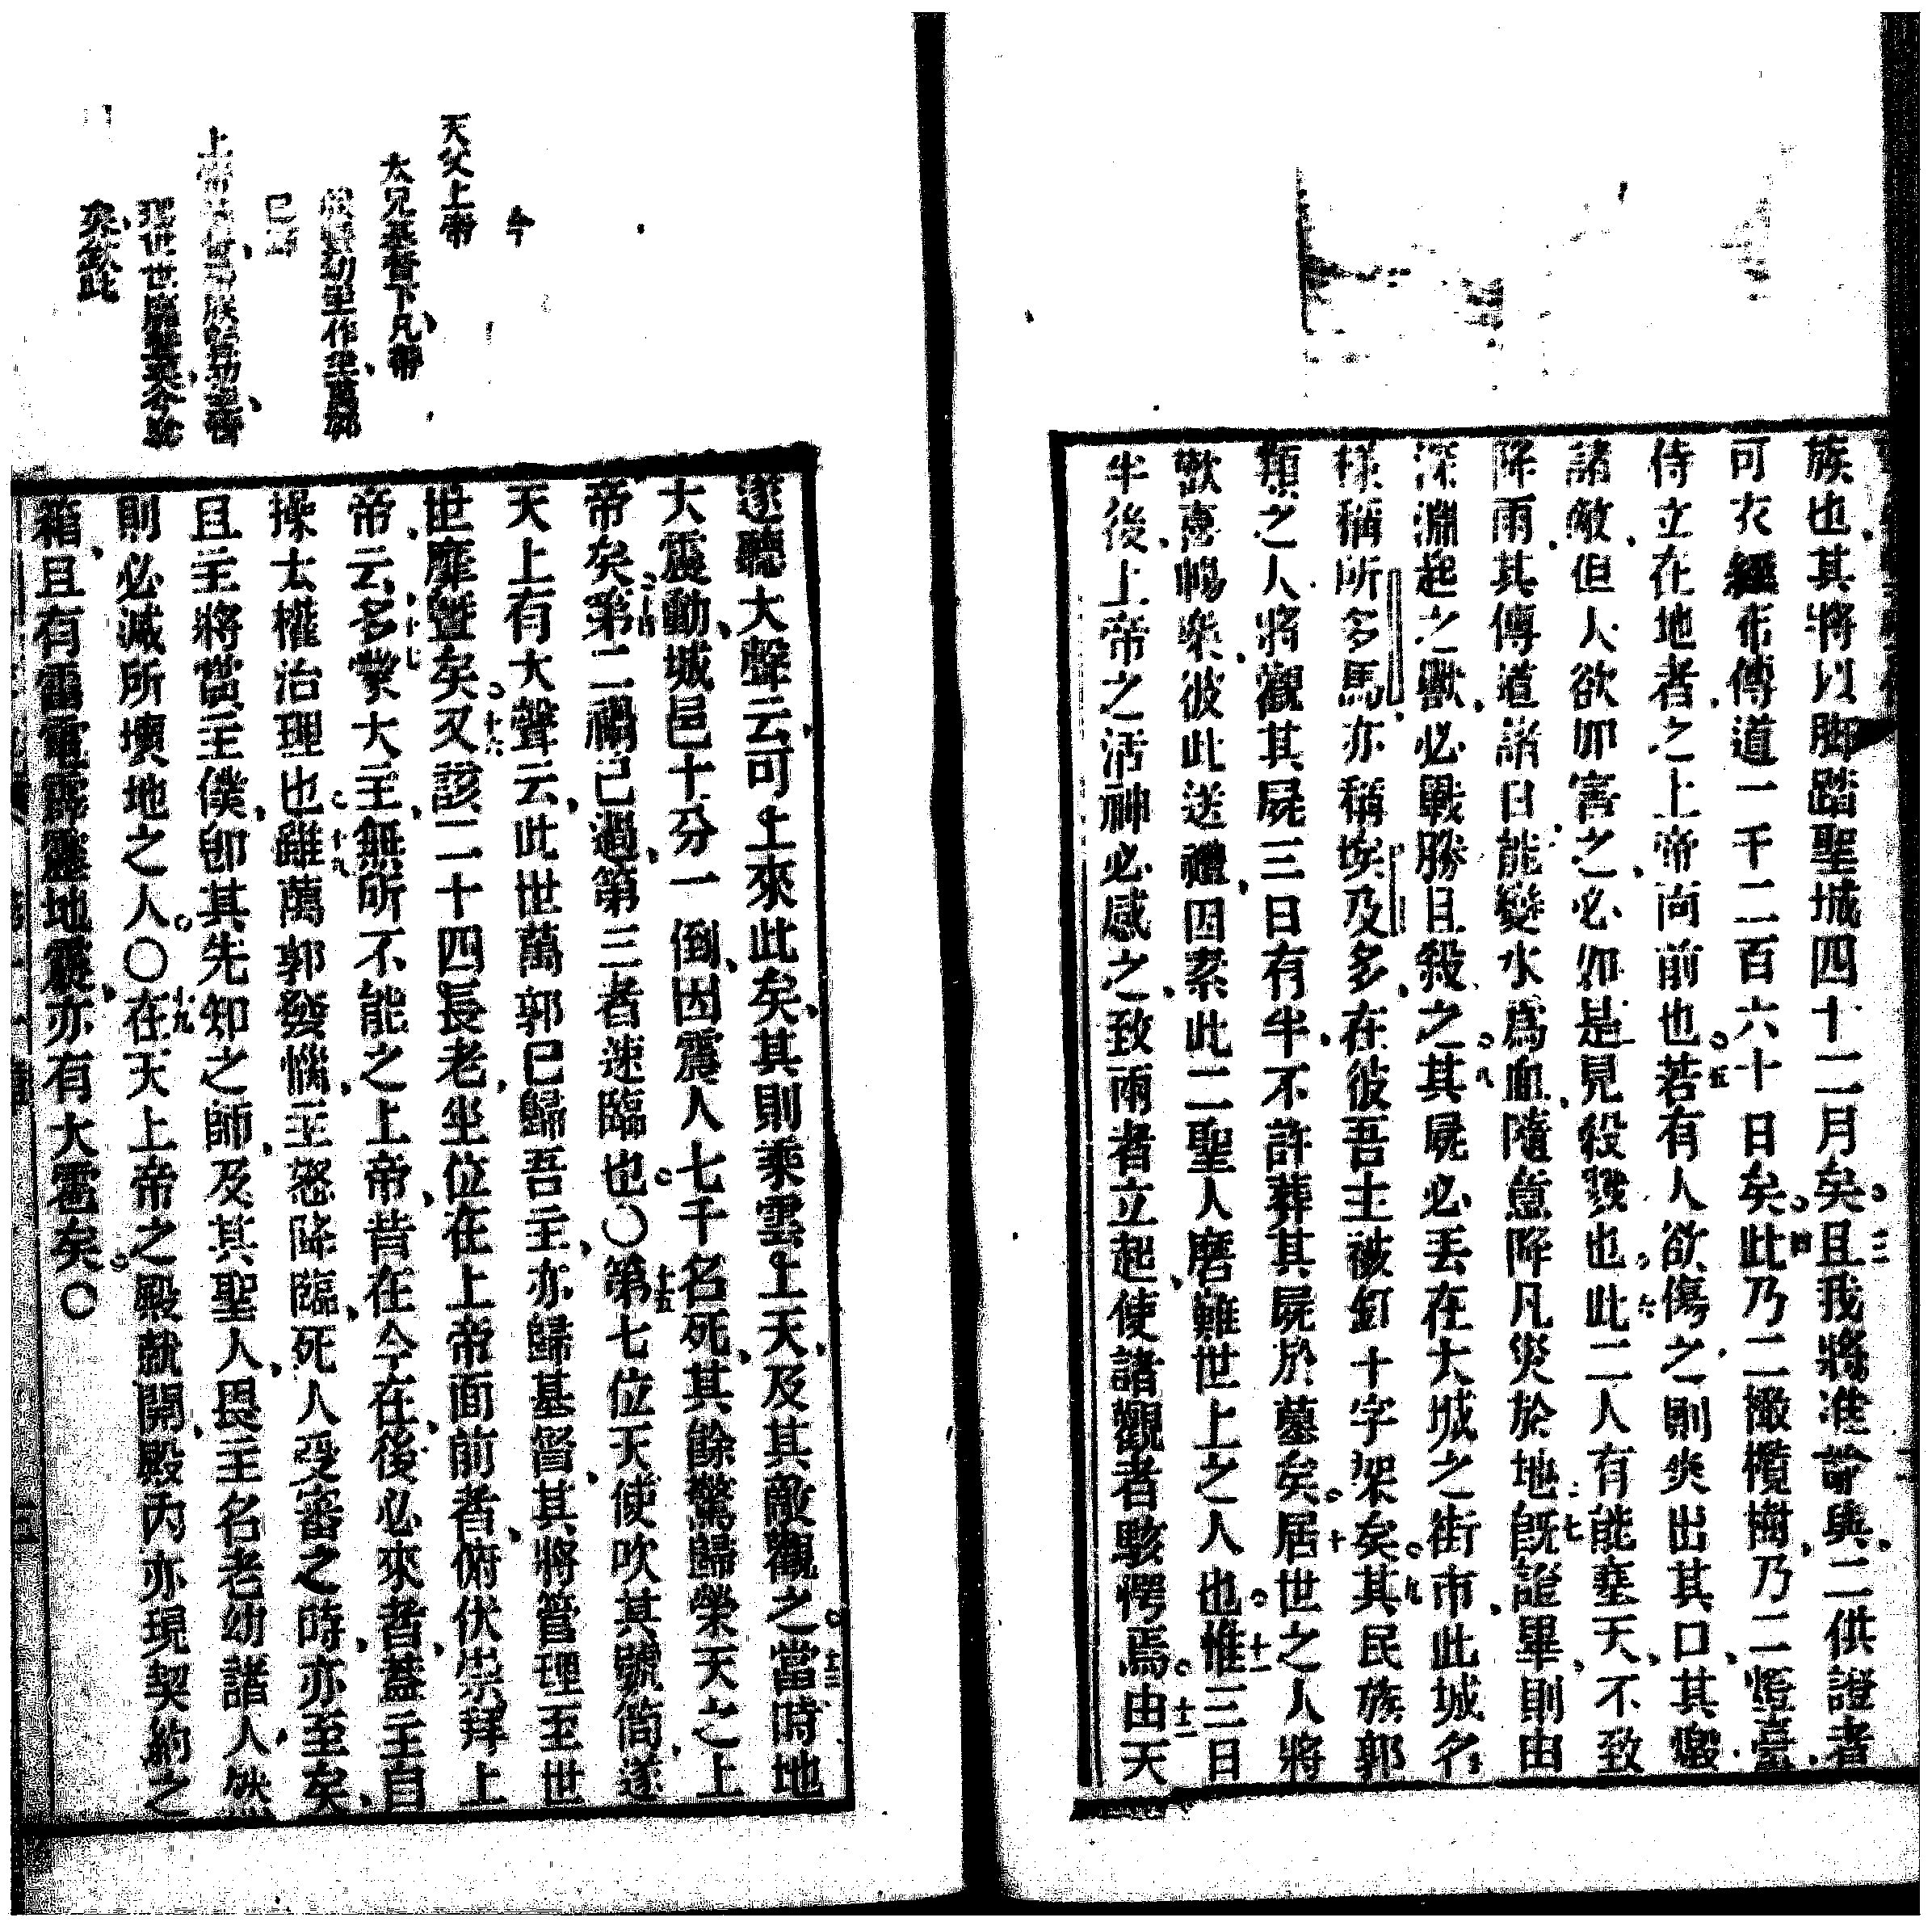 族也其將以脚踏聖城四十二月矣三且我將准諭與二供證者
可衣布傳道一千二百六十日矣四此乃二橄欖樹乃二燈臺
侍立在地者之上帝面前也五若有人欲傷之則炎出其口其燬
諸敵但人欲如害之必如是見殺戮也六此二人有能塞天不致
降雨其傳道諸日能變水爲血隨意降凡災於地七既證畢則由
深淵起之獸必戰勝且殺之八其屍必丟在大城之街市此城名
樣稱所多馬亦稱埃及多在彼吾主被釘十字架矣九其民族郭
類之人將觀其屍三日有半不許葬其屍於墓矣十居世之人將
歡喜暢樂彼此送禮因素此二聖人磨難世上之人也十一惟三日
半後上帝之活神必感之致兩者立起使諸觀者駭愕焉十二由天
今
天父上帝
太兄基督下凡帶
幼主作主萬郭
上帝
世世靡暨矣今
矣欽此
遂聽大聲云可上來此矣其則乘雲上天及其敵觀之十三當時地
大震動城邑十分一倒因震人七千名死其餘驚歸榮天之上
帝矣十四第二禍已過第三者速臨也〇十五第七位天使吹其號筒遂
天上有大聲云此世萬郭已歸吾主亦歸基督其將管理至世
世靡曁矣十六又該二十四長老坐位在上帝面前者俯伏崇拜上
帝云十七多蒙大主無所不能之上帝昔在今在後必來者蓋主自
操大權治理也十八雖萬郭發惱主怒降臨死人受審之時亦至矣
且主將賞主僕卽其先知之師及其聖人畏主名老幼諸人
則必滅所壞地之人〇十九在天上帝之殿就開殿內亦現契約之
箱且有雷電霹靂地震亦有大雹矣〇